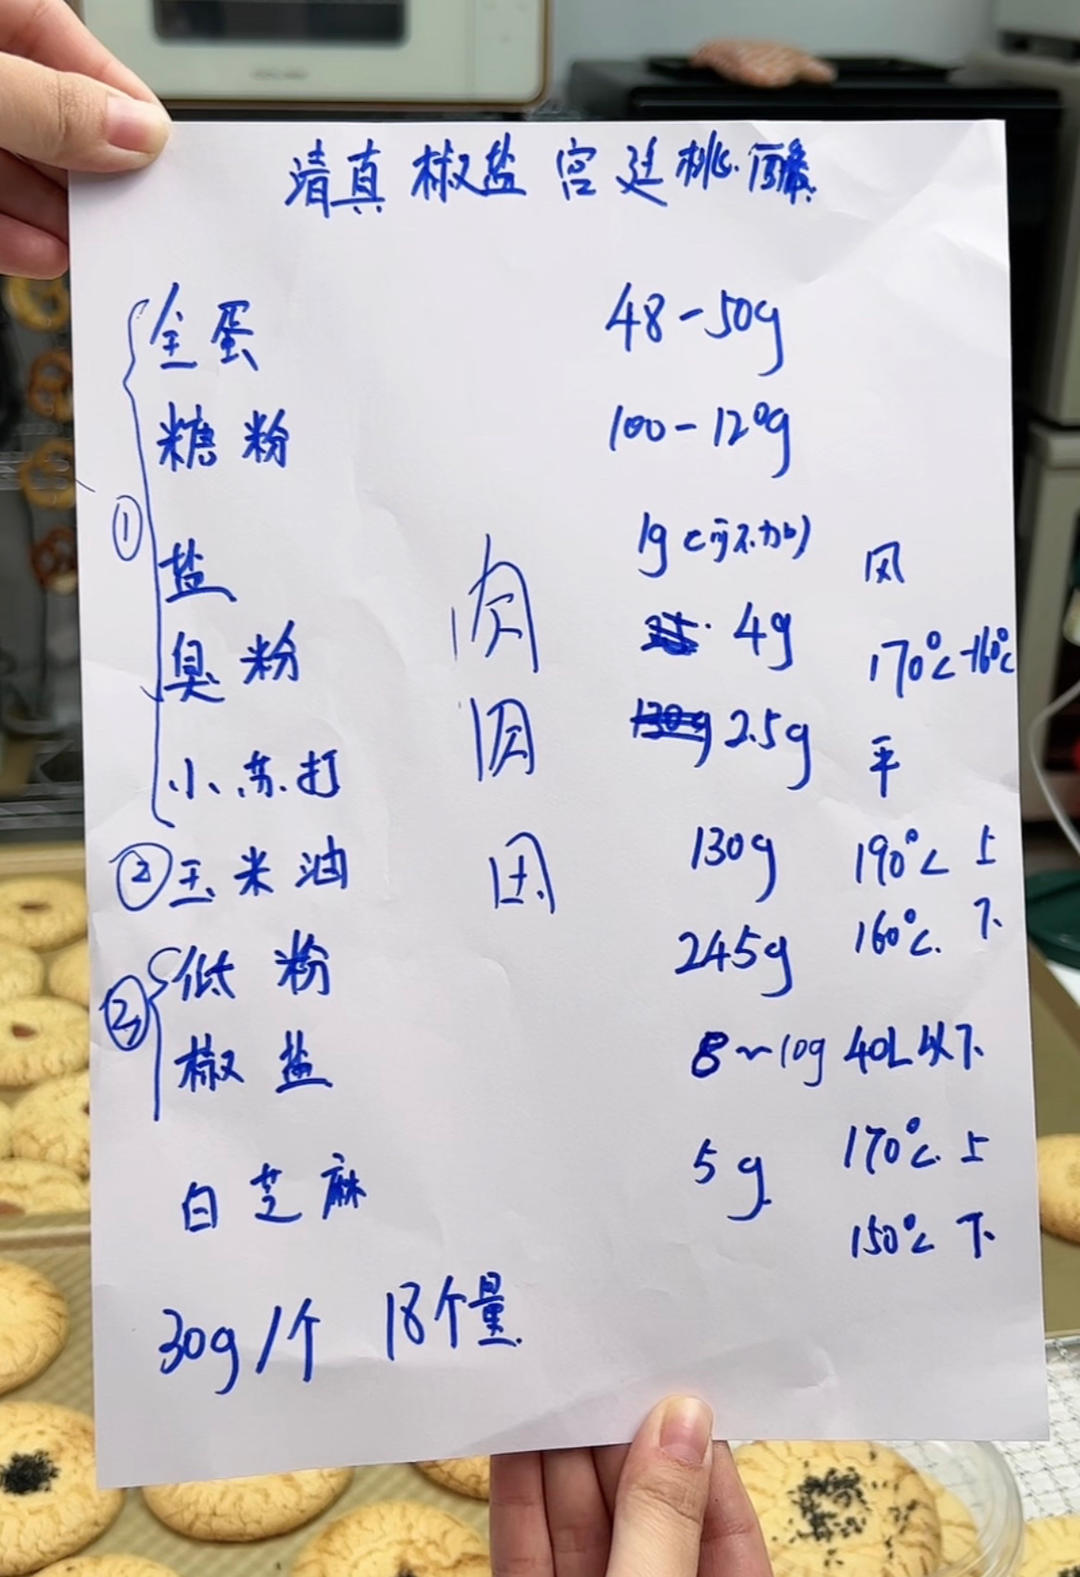 清真椒盐宫廷桃酥
① 全蛋 48-50g
糖粉 100-120g
盐 1g(可不加)
臭粉 4g
小苏打 2.5g
② 玉米油 130g
③ 低粉 245g
椒盐 8~10g
白芝麻 5g
30g/个 18个量
风
170℃-160℃
平
190℃ 上
160℃ 下
40L以下
170℃ 上
150℃ 下